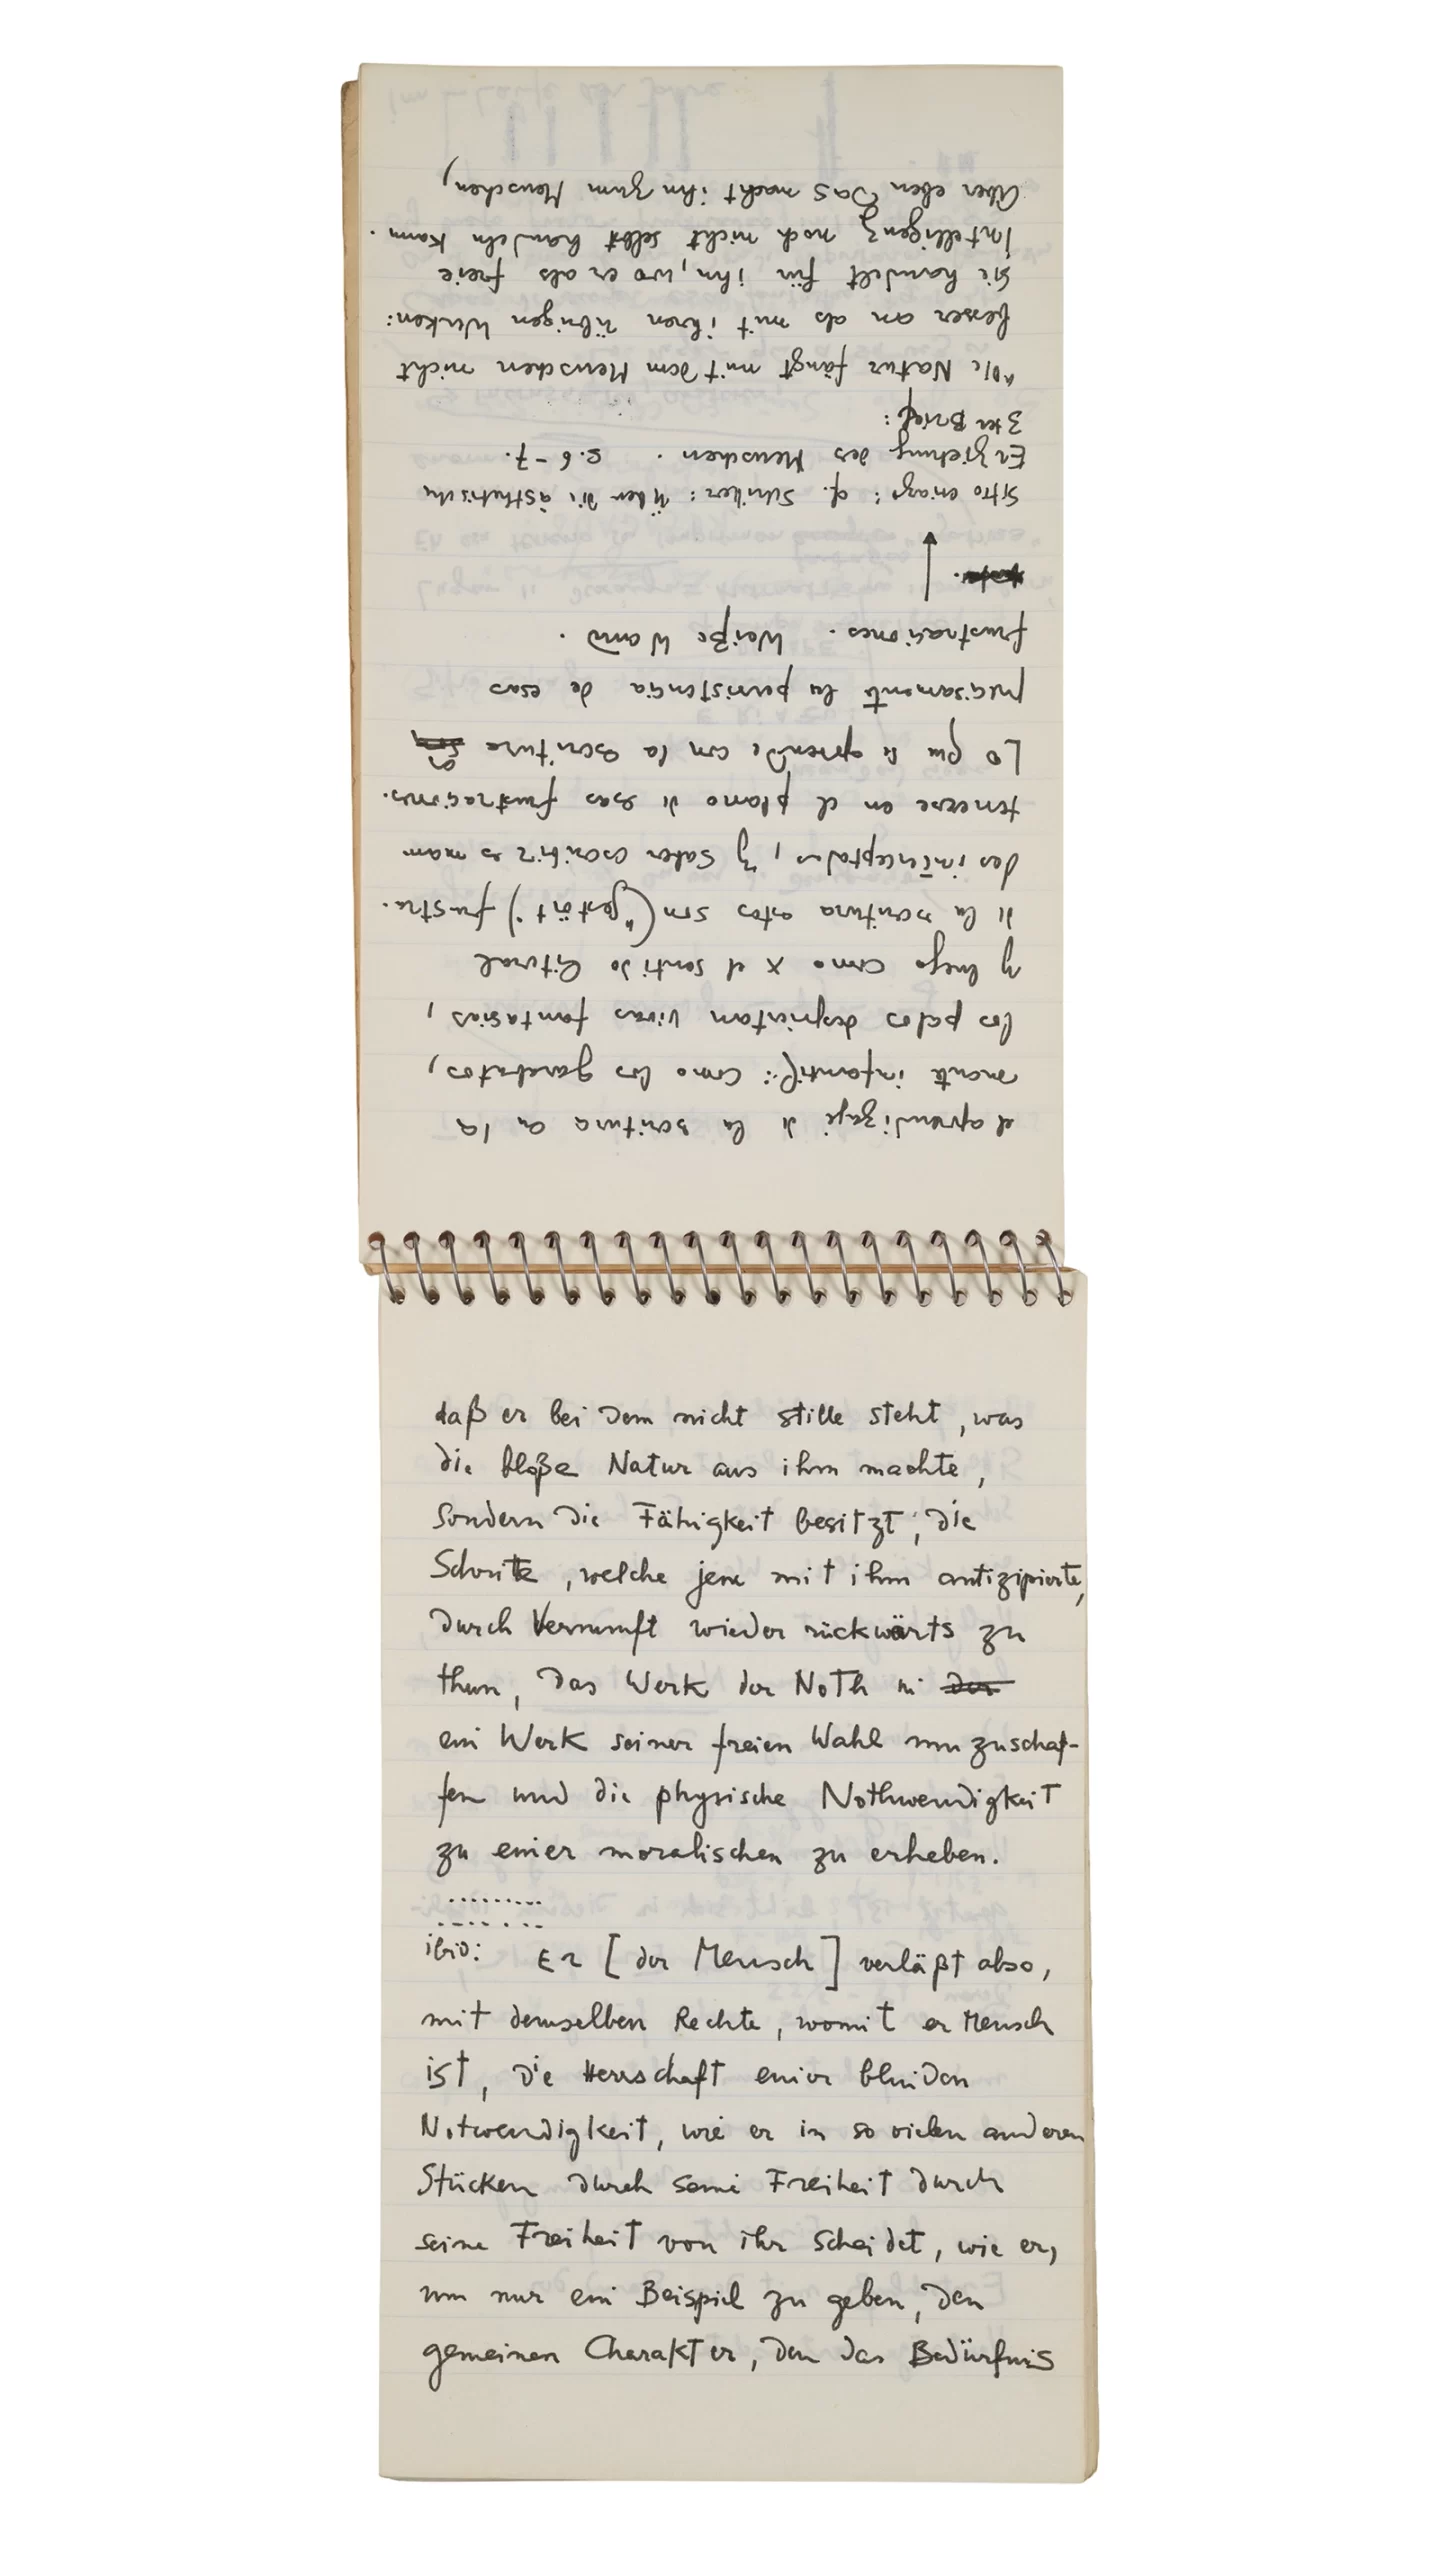 el aprendizaje de la escritura en la
mente infantil: como los garabatos,
los palos despiertan vivas fantasías,
y luego como x el sentido literal
de la escritura estos son ("gestört") frustra.
das interceptadas, y saber escribir es man
tenerse en el plano de esas frustraciones.
Lo que se aprende con la escritura es
precisamente la persistencia de esas
frustraciones. Weiße Wand.
otro enlage: cf. Schiller: Über die ästhetische
Erziehung des Menschen. S. 6-7.
3ter Brief:
"Die Natur fängt mit dem Menschen nicht
besser an als mit ihren übrigen Werken:
sie handelt für ihn, wo er als freie
Intelligenz noch nicht selbst handeln kann.
Aber eben Das macht ihn zum Menschen,
daß er bei dem nicht stille steht, was
die bloße Natur aus ihm machte,
sondern die Fähigkeit besitzt, die
Schritte, welche jene mit ihm antizipierte,
durch Vernunft wieder rückwärts zu
thun, das Werk der Noth in der
ein Werk seiner freien Wahl umzuschaf-
fen und die physische Nothwendigkeit
zu einer moralischen zu erheben.
.........
.......
ibid: Er [der Mensch] verläßt also,
mit demselben Rechte, womit er Mensch
ist, die Herrschaft einer blinden
Notwendigkeit, wie er in so vielen anderen
Stücken durch seine Freiheit durch
seine Freiheit von ihr scheidet, wie er,
um nur ein Beispiel zu geben, den
gemeinen Charakter, den das Bedürfnis